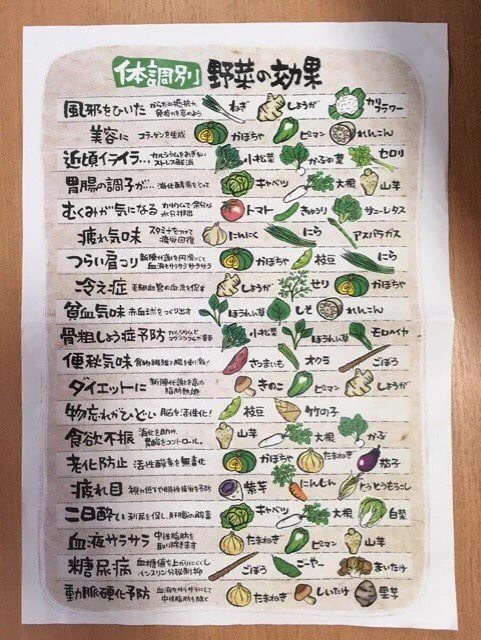 体調別 野菜の効果
風邪をひいた からだの抵抗力、発疫力を高めよう ねぎ しょうが カリフラワー
美容に コラーゲンを生成 かぼちゃ ピーマン れんこん
近頃イライラ… カルシウムをおぎない ストレス解消 小松菜 かぶの葉 セロリ
胃腸の調子が… 消化酵素をとって キャベツ 大根 山芋
むくみが気になる カリウムで余分な水分排出 トマト きゅうり サニーレタス
疲れ気味 スタミナをつけて疲労回復 にんにく にら アスパラガス
つらい肩コリ 新陳代謝を円滑にして血液をサラサラサラサラ かぼちゃ 枝豆 にら
冷え症 毛細血管の血流を促す しょうが せり かぼちゃ
貧血気味 赤血球をつくり出す ほうれん草 しそ れんこん
骨粗しょう症予防 カルシウムとマグネシウムが重要 小松菜 ほうれん草 モロヘイヤ
便秘気味 食物繊維で腸を さつまいも オクラ ごぼう
ダイエットに 新陳代謝を高め脂肪燃焼 きのこ ピーマン しょうが
物忘れがひどい 脳を活性化! 枝豆 竹の子
食欲不振 消化を助け、胃酸をコントロール。 山芋 大根 かぶ
老化防止 活性酸素を無毒化 かぼちゃ たまねぎ 茄子
疲れ目 視力低下や眼性疲労を予防 紫芋 にんじん とうもろこし
二日酔い 利尿を促し、肝臓の解毒 キャベツ 大根 白菜
血液サラサラ 中性脂肪を取り除きます たまねぎ ピーマン 山芋
糖尿病 血糖値を上がりにくくし インスリン分泌制抑 ごぼう ごーやー まいたけ
動脈硬化予防 血液をサラサラにして中性脂肪を除く たまねぎ しいたけ 里芋